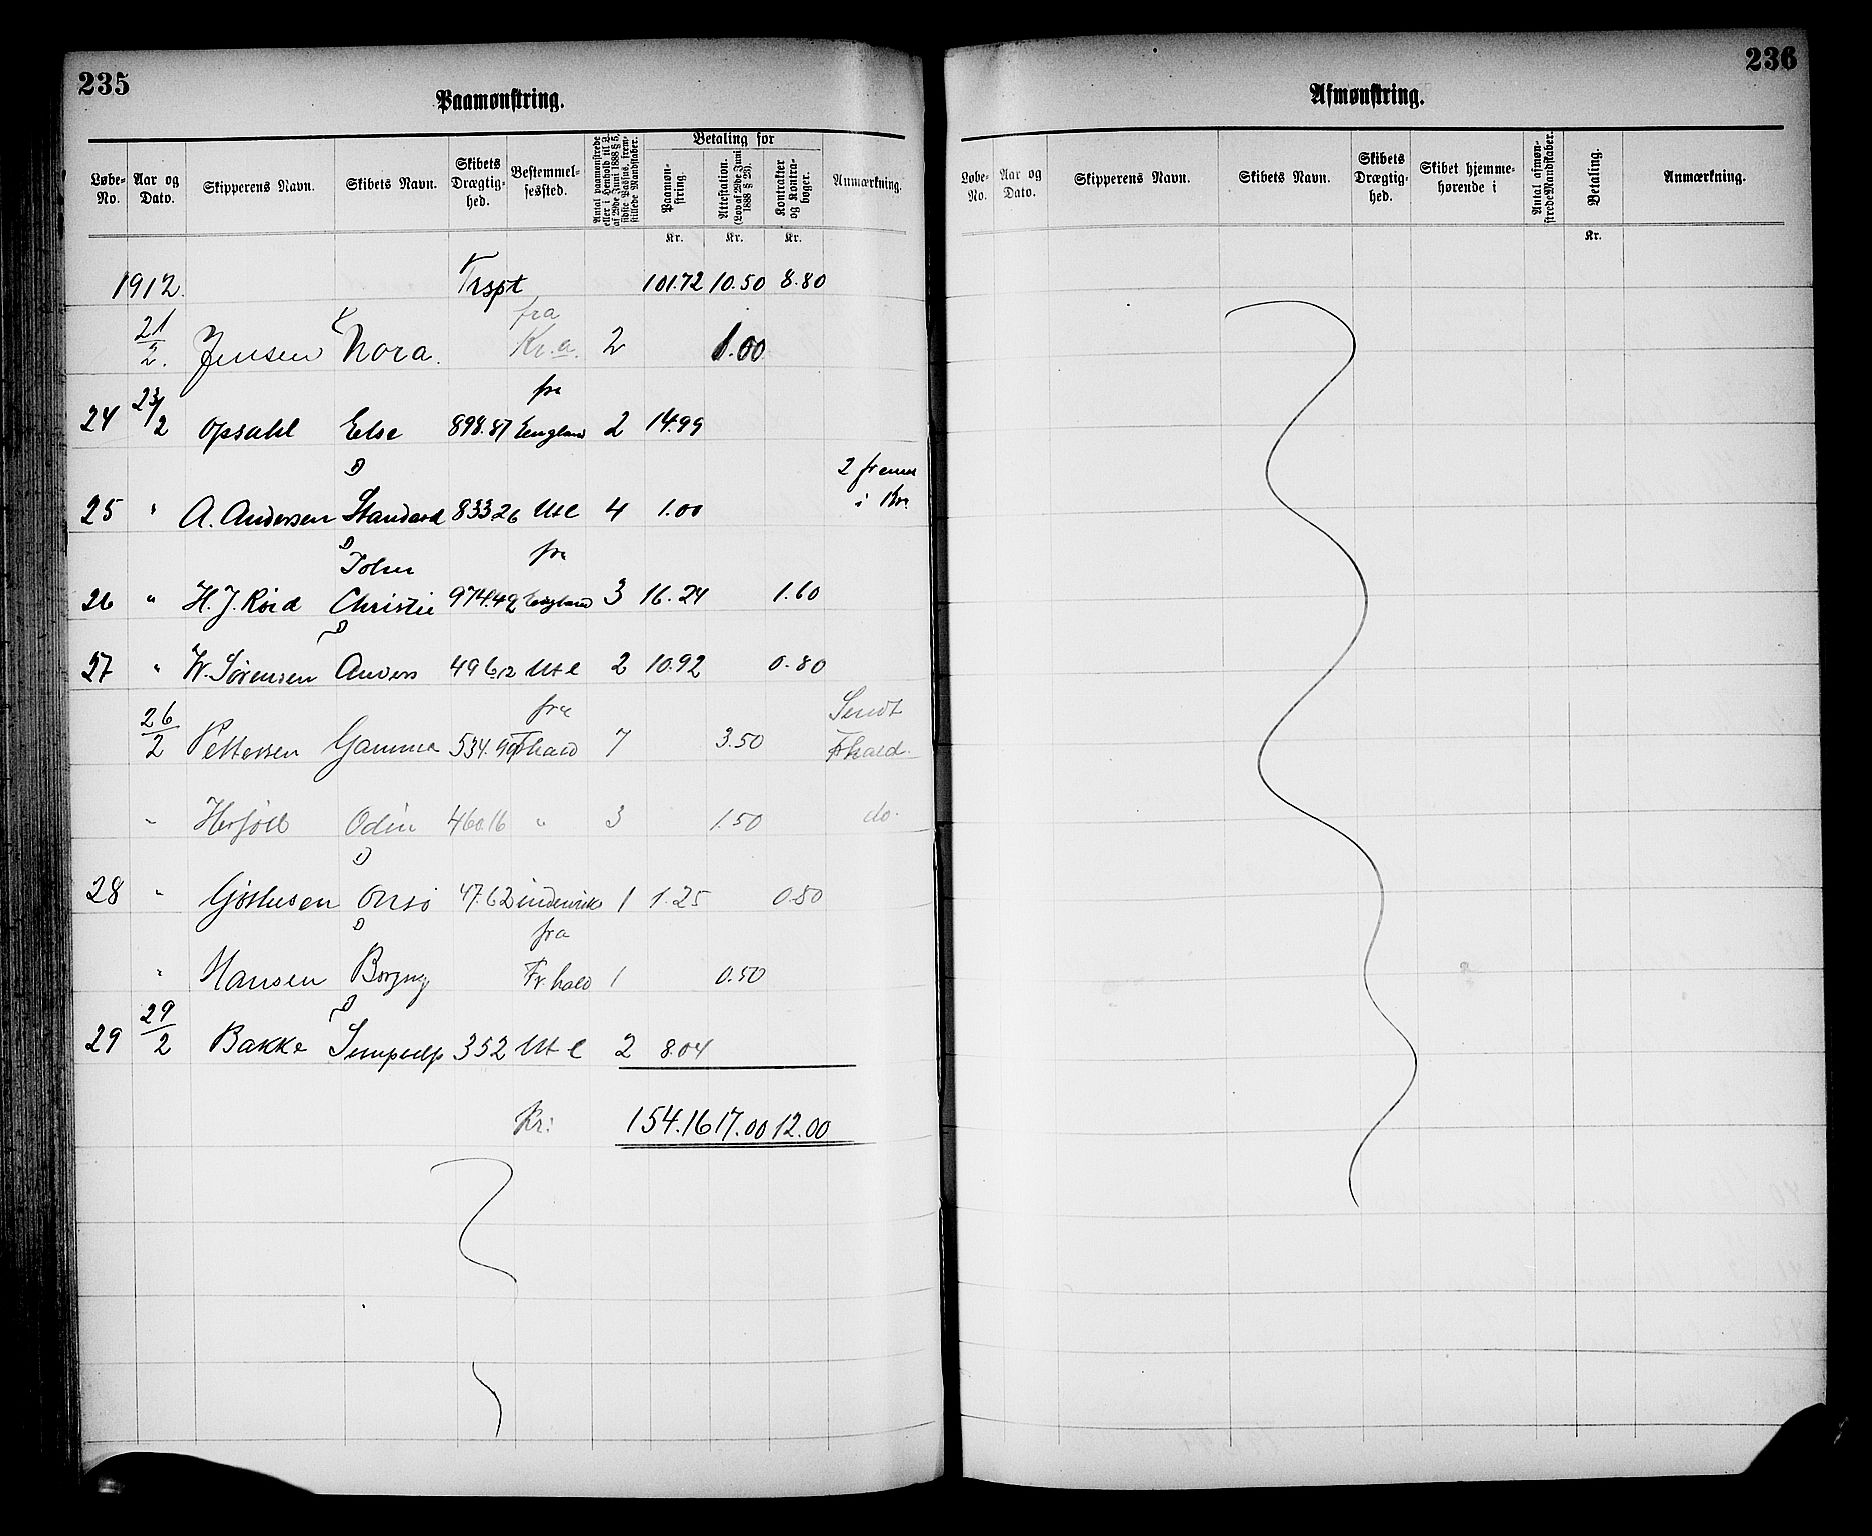 235
Paamønstring.
Løbe-No. Aar og Dato. Skipperens Navn. Skibets Navn. Skibets Drægtighed. Bestemmelsessted. Antal paamønstrede eller i Henhold til L. af 29de Juni 1888 § 5, sidste Passus, fremstillede Mandskaber. Betaling for Paamønstring. Attestation. (Lov af 29de Juni 1888 § 23). Kontrakter og Kontrabøger. Anmærkning.
Kr. Kr. Kr.
1912. Trspt 101.72 10.50 8.80
fra
21/2. Jensen Nora. Kr.a. 2 1.00
fra
24 23/2 Opsahl Else 898.87 England 2 14.99
2 frem
25 " A. Andersen Standard 833.26 Utl 4 1.00 i
fra
26 " H. J. Christie 974.42 England 3 16.24 1.60
27 " W. Sørensen Anders 496.12 Utl 2 10.92 0.80
fra Sendt
26/2 Pettersen Gamma 534.99 Frhald 7 3.50 Frhald.
" Odin 460.16 " 3 1.50 do.
28 " Onsø 47.62 indenriks 1 1.25 0.80
fra
" Hansen Borgny Fr.hald 1 0.50
29 29/2 Bakke 352 Utl 2 8.04
Kr: 154.16 17.00 12.00
236
Afmønstring.
Løbe-No. Aar og Dato. Skipperens Navn. Skibets Navn. Skibets Drægtighed. Skibet hjemmehørende i Antal afmønstrede Mandskaber. Betaling. Anmærkning.
Kr.